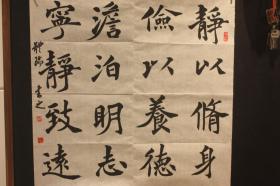 靜以脩身
儉以養德
澹泊明志
寧靜致遠